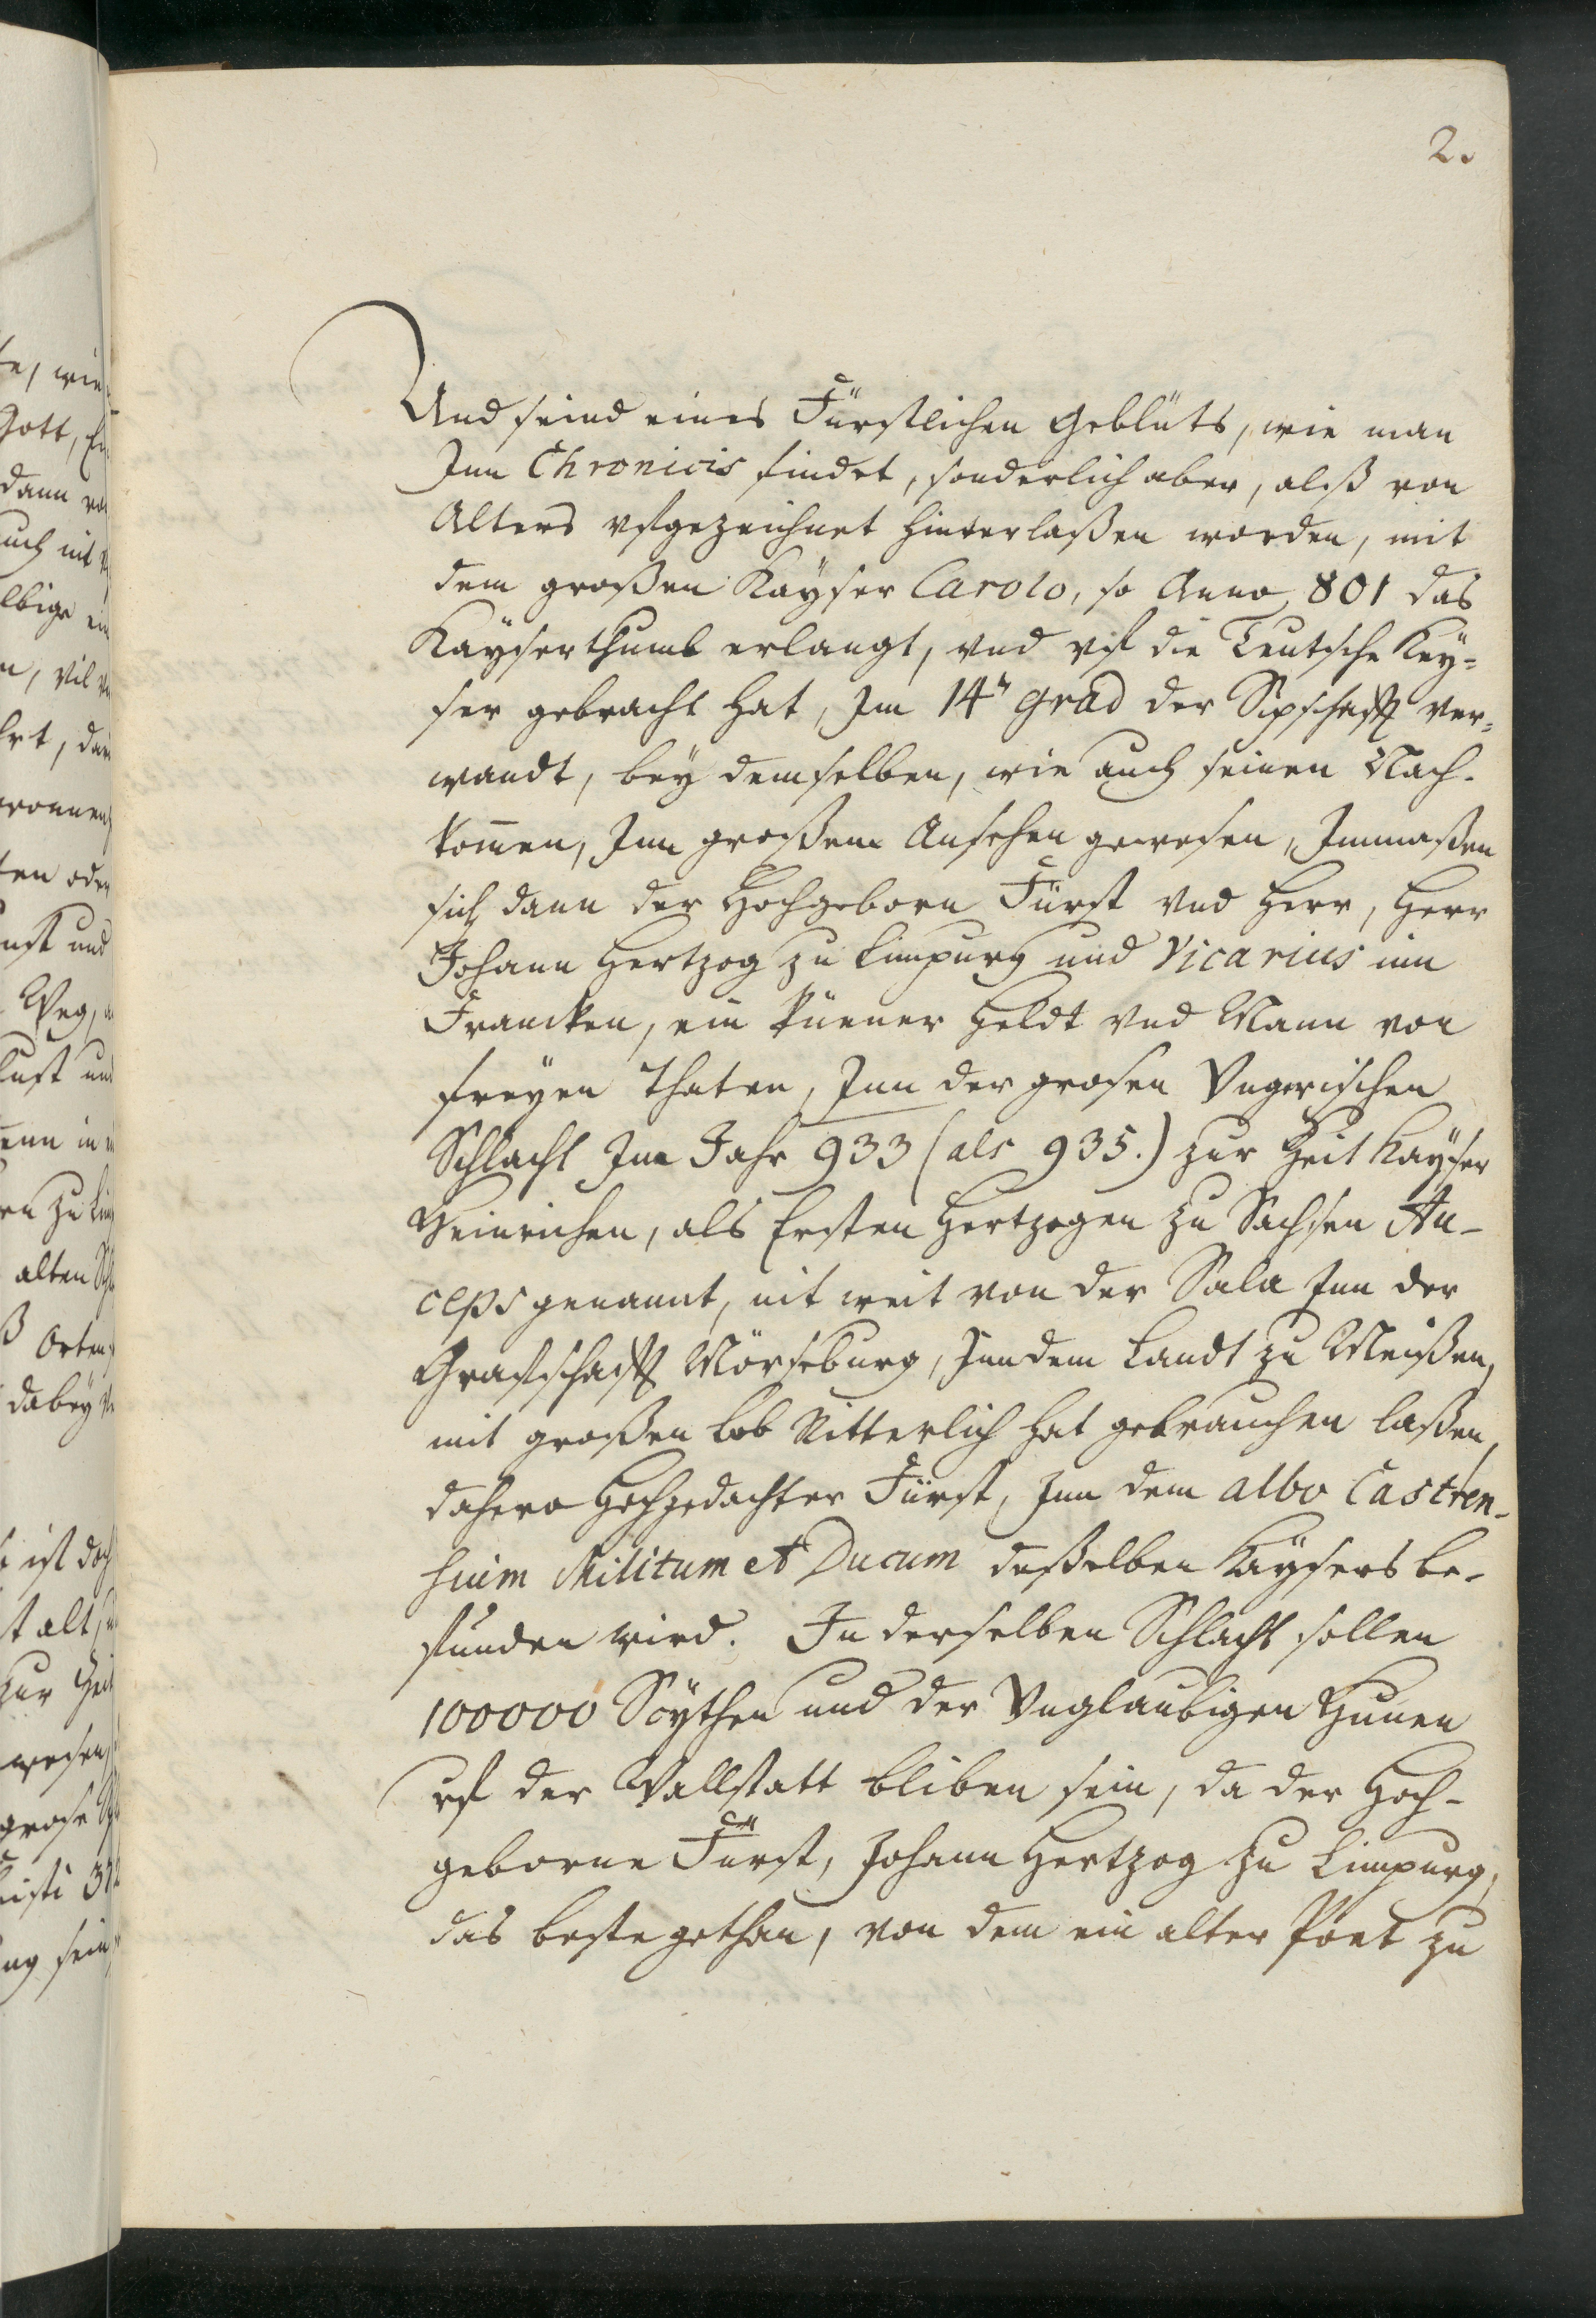 2.
Und seind eines Fürstlichen Geblüts, wie man
Inn Chronicis findet, sonderlich aber, alß von
Alters vfgezeichnet hinterlaßen worden, mit
dem großen Kayser Carolo, so Anno 801 das
Kayserthumb erlangt, vnd vf die Teutsche Key=
ser gebracht hat, Im 14n grad der Sipschafft ver=
wandt, bey demselben, wie auch seinen Nach-
kom̄en, Inn großem Ansehen gewesen, Inmaßen
sich dann der Hochgeborn Fürst vnd Herr, Herr
Johann Hertzog zu Limpurg und Vicarius inn
Francken, ein küener Heldt vnd Mann von
freyen Thaten, Inn der grosen Vngerischen
Schlacht Im Jahr 933 (als 935.) zur Zeit Kayser
Heinrichen, als Ersten Hertzogen zu Sachsen Au-
ceps genannt, nit weit von der Sala Inn der
Graffschafft Mörseburg, Inn dem Landt zu Meißen,
mit großen Lob Ritterlich hat gebrauchen laßen,
dahero Hochgedachter Fürst, Inn dem albo Castren-
sium Militum et Ducum deßelben Kaysers be-
funden wird. In derselben Schlacht sollen
100000 Scythen und der Vnglaubigen Hunen
vf der Wallstatt bliben sein, da der Hoch-
geborne Fürst, Johann Hertzog zu Limpurg,
das beste gethan, von dem ein alter Poet zu